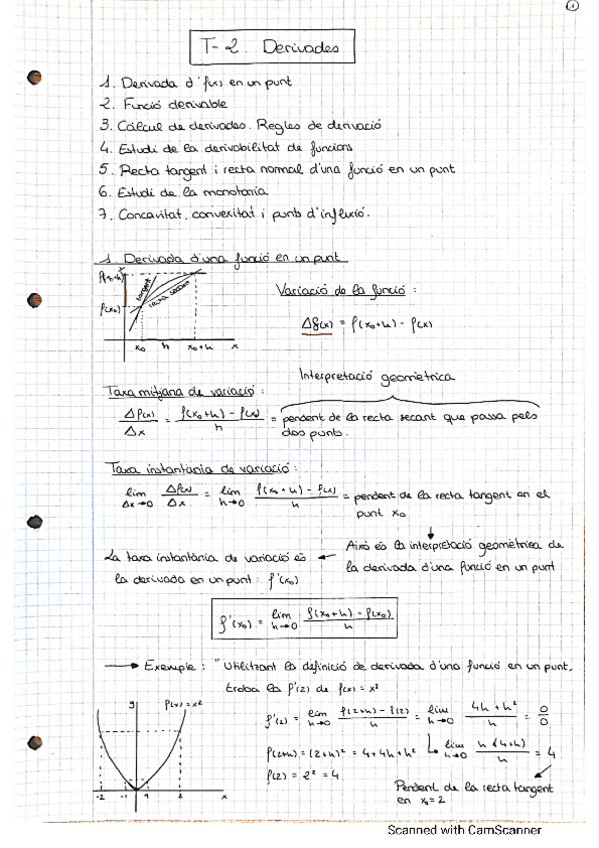 1
T-2. Derivades
1. Derivada d'f(x) en un punt
2. Funció derivable
3. Càlcul de derivades. Regles de derivació
4. Estudi de la derivabilitat de funcions
5. Recta tangent i recta normal d'una funció en un punt
6. Estudi de la monotonia
7. Concavitat, convexitat i punts d'inflexió.
1. Derivada d'una funció en un punt
f(x₀+h)
f(x₀)
tangent
recta secant
x₀ h x₀+h x
Variació de la funció:
Δf(x) = f(x₀+h) - f(x)
Interpretació geomètrica
Taxa mitjana de variació:
Δf(x)/Δx = (f(x₀+h) - f(x))/h = pendent de la recta secant que passa pels
dos punts.
Taxa instantània de variació:
lim Δx→0 Δf(x)/Δx = lim h→0 (f(x₀+h) - f(x))/h = pendent de la recta tangent en el
punt x₀
Això és la interpretació geomètrica de
la derivada d'una funció en un punt
La taxa instantània de variació és
la derivada en un punt: f'(x₀)
f'(x₀) = lim h→0 (f(x₀+h) - f(x₀))/h
→ Exemple: "Utilitzant la definició de derivada d'una funció en un punt,
troba la f'(2) de f(x) = x²
y f(x) = x²
-2 -1 1 2 x
f'(2) = lim h→0 (f(2+h) - f(2))/h = lim h→0 (4h + h²)/h = 0/0
f(2+h) = (2+h)² = 4+4h+h²
lim h→0 h(4+h)/h = 4
f(2) = 2² = 4
Pendent de la recta tangent
en x₀=2
Scanned with CamScanner